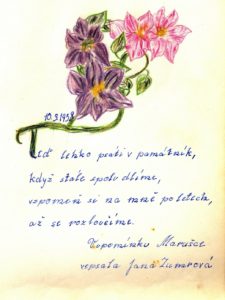 10.3.1938
Teď lehko psáti v památník,
když stále spolu dlíme,
vzpomeň si na mně po letech,
až se rozloučíme.
Vzpomínku Marušce
vepsala Jana